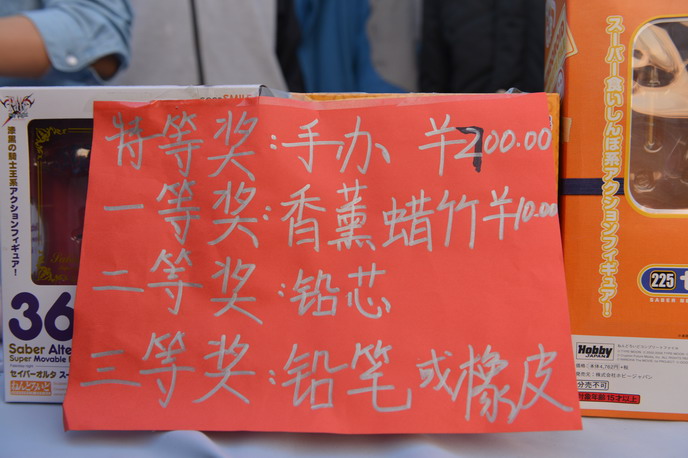 特等奖:手办 ¥200.00
一等奖:香薰蜡竹 ¥10.00
二等奖:铅芯
三等奖:铅笔或橡皮
漆黒の騎士王系アクションフィギュア!
36
Saber Alte
Super Movable
セイバーオルタ スー
ねんどろいど
スーパー食いしんぼ系アクションフィギュア!
225
Hobby
JAPAN
分売不可
対象年齢15才以上